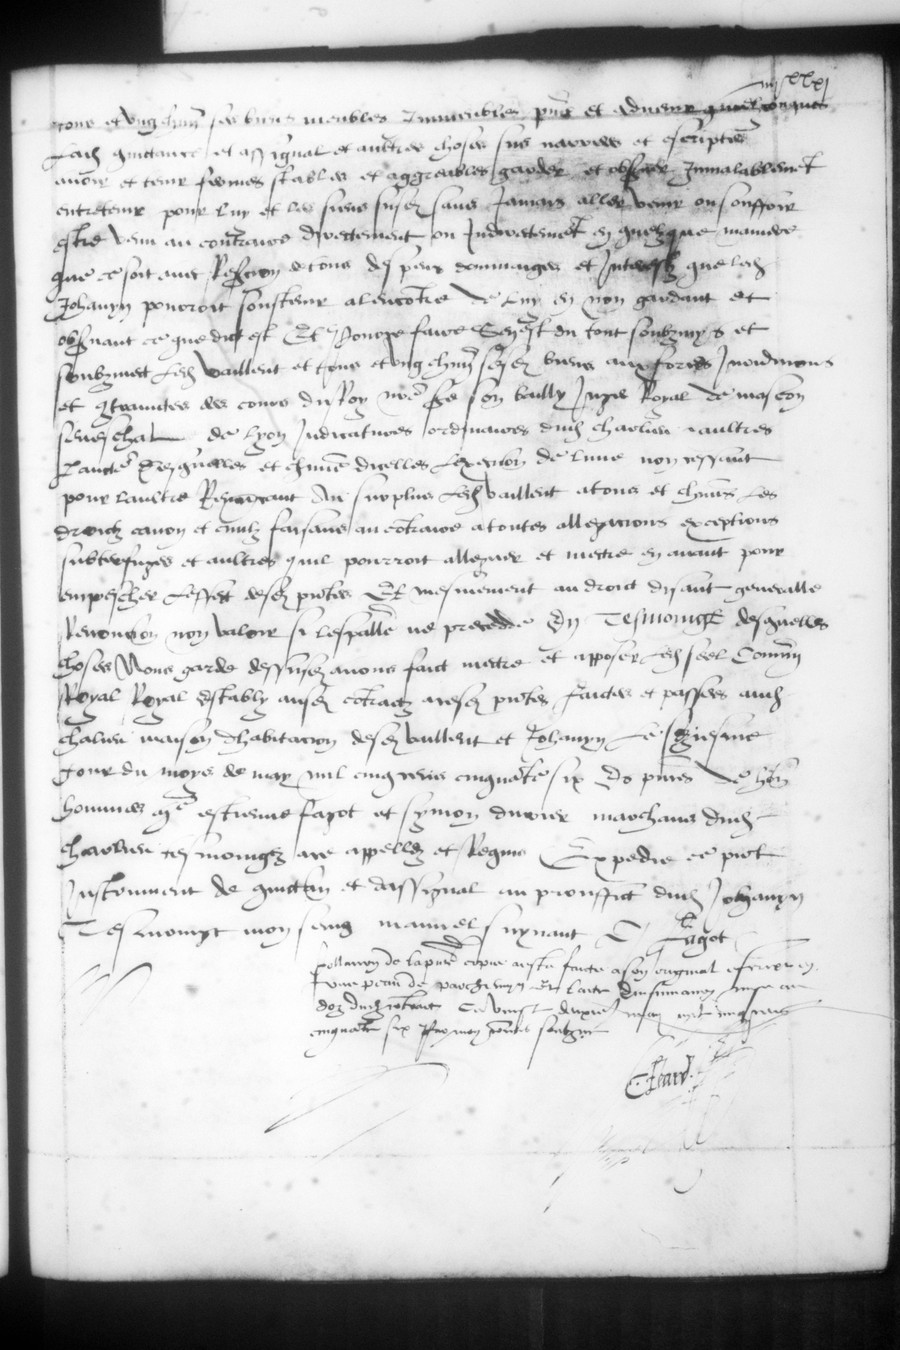 iiij xx xj
tous et ung chun ses biens meubles Immeubles pns et advenir quelzconques
Lesd quittance et assignal et aultres choses sus narrees et escriptes
avoir et tenir fermes stables et aggreables garder et observer Inviolablement
entretenir pour luy et les siens susd sans Jamais aller venir ou souffrir
estre venu au contraire directement ou Indirectement en quelque maniere
que ce soit avec Refection de tous despens dommaiges et Interestz que led
Johanyn pourroit soustenir a lencontre de luy en non gardant et
observant ce que dict est Et pour ce faire du tout soubzmys et
soubzmect Led Vaillent et tous et ung chun sesd biens aux forces Juridicions
et contrainctes des cours du Roy nre sire son bailly Juge Royal de mascon
seneschal de lyon Judicatures ordinaires dud charlieu et aultres
lune non cessant
pour laultre Renonceant Au surplus Led Vaillent a tous et chuns Les
droictz canon et civilz faisans au contraire a toutes allegacions exceptions
subterfuges et aultres quil pourroit alleguer et mettre en avant pour
empescher Leffect desd pntes Et mesmement au droict disant generalle
Renonciation non valoir si lespalle ne precedde En Tesmoing desquelles
choses Nous garde dessusd avons faict mettre et apposer Led seel Commun
Royal Royal Estably ausd contractz a cesd pntes faictes et passees aud
charlieu maison dhabitacion desd vaillent et Johanyn Le
Jour du moys de may mil cinq cens cinquante six Es pnces de hon
hommes me estienne fagot et symon duvier marchans dud
charlieu tesmoingz a ce appellez et Requis Expedie ce pnt
Instrument de quittan et dassignal au prouffict dud Johanyn
Tesmoingt mon seing manuel s
Fagot
Collation de la pnte copie a este faicte a son original escript en
une peau de parchemyn Et lacte Dinsinuation mise au
doz dud contract Ce vingt deuxe may mil cinq cens
cinquante six Par moy soubzne